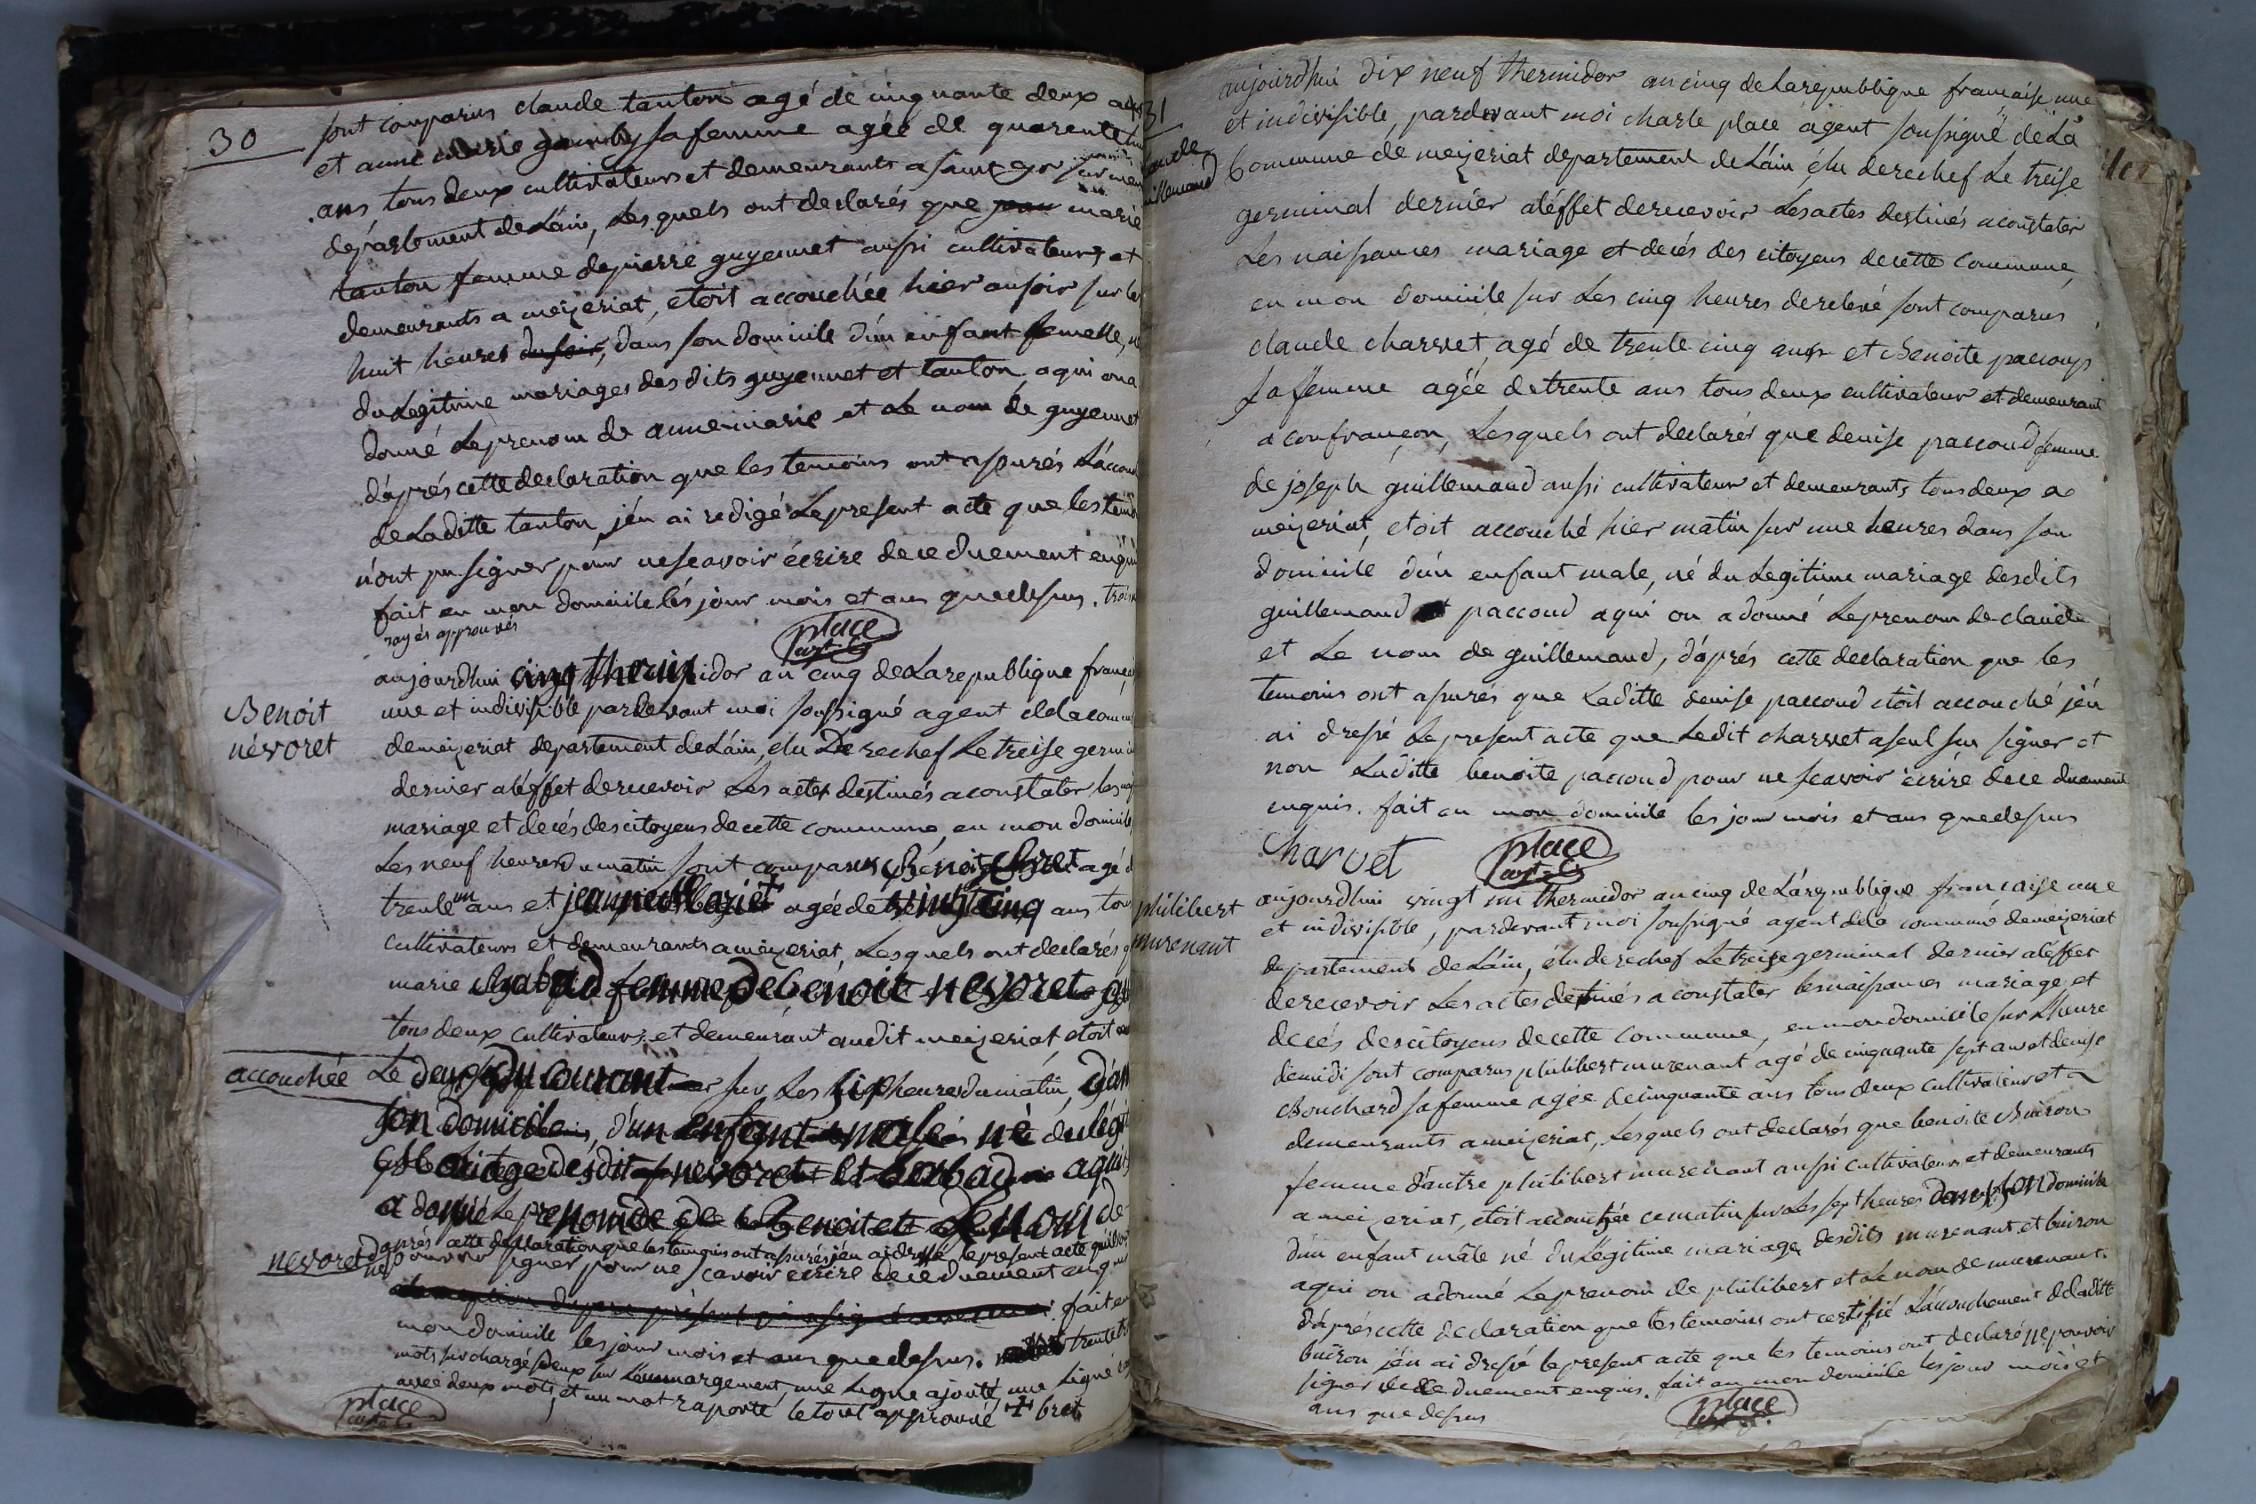 30
sont comparus claude tanton agé de cinquante deux ans
et anne marie sa femme agée de quarente
ans, tous deux cultivateurs et demeurants a saint
département de Láin, Lesquels ont declarés que marie
tanton femme de pierre guyennet aussi cultivateurs et
demeurants a meizeriat, etoit accouchée hier au soir sur les
huit heures du soir, dans son domicile d'un enfant femelle,
du Legitime mariages desdits guyennet et tanton, a qui on a
donné Le prenom de anne marie et Le nom de guyennet
d'aprés cette declaration que les temoins ont assurés L'accou
de Laditte tanton j'en ai redigé Le present acte que les tem
n'ont pu signer pour ne scavoir écrire de ce duement enqui
fait en mon domicile les jour mois et ans que dessus. trois
rayés approuvés
place
Benoit
névoret
aujourdhui cinq thermidor an cinq de La republique françai
une et indivisible pardevant moi soussigné agent de la comm
de meizeriat departement de Láin, élu Derechef Le treise germi
dernier a l'éffet de recevoir Les actes destinés a constater les
mariage et decés des citoyens de cette commune, en mon domicile
Les neuf heures du matin sont comparus Bénoit Bret agé d
trente un ans et jeanne Mariet agée de vingt cinq ans tou
cultivateurs et demeurants a meizeriat, Lesquels ont declarés q
marie femme de bénoit nevoret
tous deux cultivateurs et demeurant audit meizeriat etoit
accouchée Le deux du courant sur Les six heures du matin, dan
son domicile, d'un enfant male né du légi
Mariage desdits nevoret et a qui
a donné Le prenom de Benoit et Le nom de
nevoret D'aprés cette declaration que les temoins ont assurés j'en ai dressé le present acte
pour ne scavoir écrire de ce duement enqui
fait en
mon domicile les jour mois et ans que dessus. trente
mots surchargés deux sur L'emmargement, une Ligne ajouté, une Ligne
avec deux mots, et un mot raporté le tout approuvé + bret
place
31
aujourdhui dix neuf thermidor an cinq de La republique francaise une
et indivisible, pardevant moi charle place agent soussigné de La
Commune de meizeriat departement de Láin, élu derechef Le treise
germinal dernier a l'éffet de recevoir Les actes destinés a constater
Les naissances mariage et decés des citoyens de cette commune,
en mon domicile sur Les cinq heures de relevé sont comparus
claude charvet, agé de trente cinq ans et Benoite paccoud
sa femme agée de trente ans tous deux cultivateur et demeurant
a confrançon, Lesquels ont declarés que denise paccoud femme
de joseph guillemaud aussi cultivateur et demeurants tous deux a
meizeriat, etoit accouché hier matin sur une heures dans son
domicile d'un enfant male, né du Legitime mariage desdits
guillemaud et paccoud a qui on a donné Le prenom de claude
et Le nom de guillemaud, d'aprés cette declaration que les
temoins ont assurés que Laditte denise paccoud etoit accouché j'en
ai dressé Le present acte que Ledit charvet a seul su signer et
non Laditte benoite paccoud pour ne scavoir écrire de ce duement
enquis. fait en mon domicile les jour mois et ans que dessus
Charvet place
philibert
murenant
aujourdhui vingt un thermidor an cinq de La republique francaise une
et indivisible, pardevant moi soussigné agent de la commune de meizeriat
departement de Láin, élu derechef Le treise germinal dernier a l'éffet
de recevoir Les actes destinés a constater les naissances mariage et
decés des citoyens de cette commune, en mon domicile sur L'heure
de midi sont comparus philibert murenant agé de cinquante sept ans et denise
Bouchard sa femme agée de cinquante ans tous deux cultivateur et
demeurants a meizeriat, Lesquels ont declarés que benoite Buiron
femme d'autre philibert murenant aussi cultivateurs et demeurants
a meizeriat, etoit accouchée ce matin sur Les sept heures dans son domicile
d'un enfant mâle né du Légitime mariage desdits murenant et buiron
a qui on a donné Le prenom de philibert et Le nom de murenant.
d'aprés cette declaration que les temoins ont certifié L'accouchement de laditte
buiron j'en ai dressé le present acte que les temoins ont declaré ne pouvoir
signer de ce duement enquis. fait en mon domicile les jour mois et
ans que dessus
place